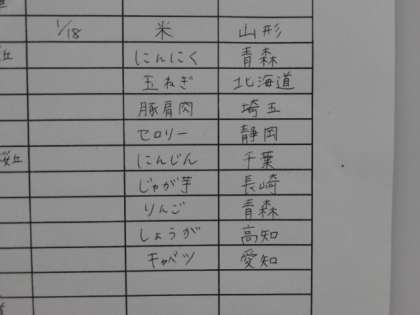 1/18 米 山形
にんにく 青森
玉ねぎ 北海道
豚肩肉 埼玉
セロリー 静岡
桜丘 にんじん 千葉
じゃが芋 長崎
りんご 青森
しょうが 高知
キャベツ 愛知